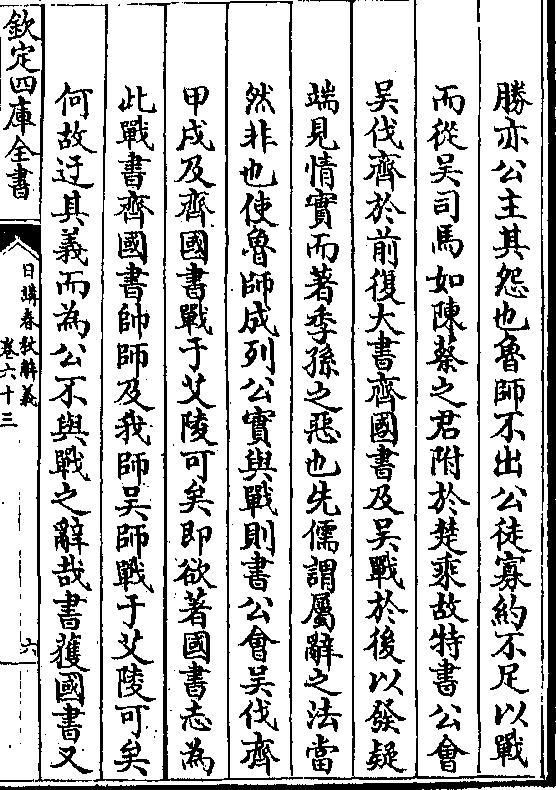 勝亦公主其怨也魯師不出公徒寡約不足以戰
而從吴司馬如陳蔡之君附於楚乘故特書公會
吴伐齊於前復大書齊國書及吴戰於後以發疑
端見情實而著季孫之惡也先儒謂屬辭之法當
然非也使魯師成列公實與戰則書公會吴伐齊
甲戌及齊國書戰于艾陵可矣即欲著國書志為
此戰書齊國書帥師及我師吴師戰于艾陵可矣
何故迂其義而為公不與戰之辭哉書獲國書又
欽定四庫全書
日講春秋解義
卷六十三
六